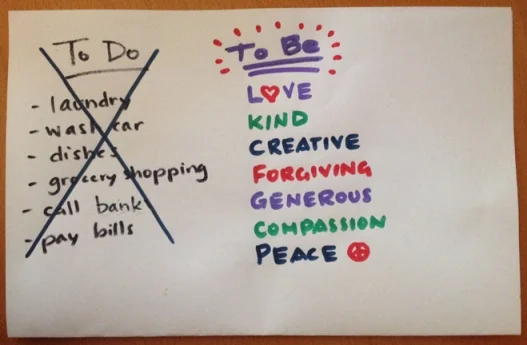 To Do
- laundry
- wash car
- dishes
- grocery shopping
- call bank
- pay bills
To Be
LOVE
KIND
CREATIVE
FORGIVING
GENEROUS
COMPASSION
PEACE